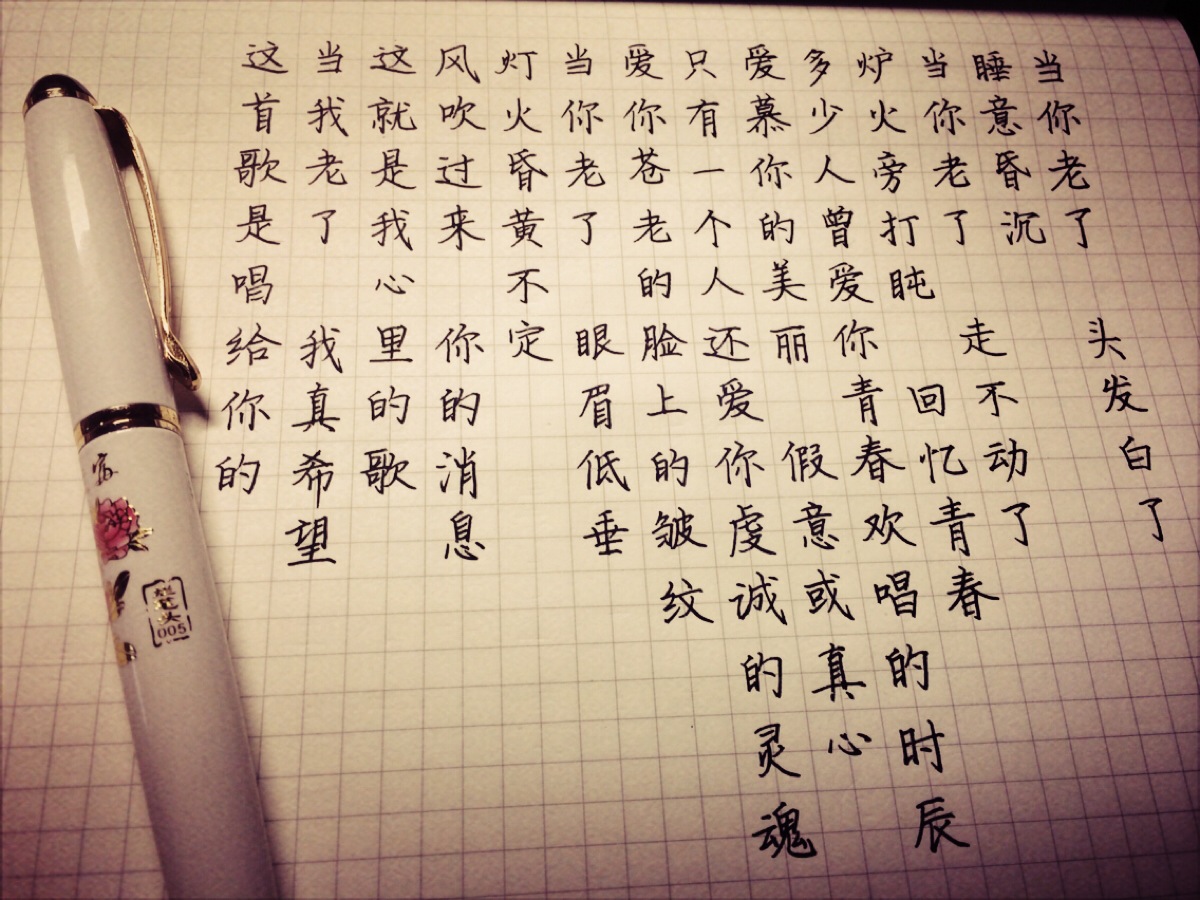 当你老了 头发白了
睡意昏沉
当你老了 走不动了
炉火旁打盹 回忆青春
多少人曾爱你 青春欢唱的时辰
爱慕你的美丽 假意或真心
只有一个人还爱你虔诚的灵魂
爱你苍老的脸上的皱纹
当你老了 眼眉低垂
灯火昏黄不定
风吹过来 你的消息
这就是我心里的歌
当我老了 我真希望
这首歌是唱给你的
烂笔头
005